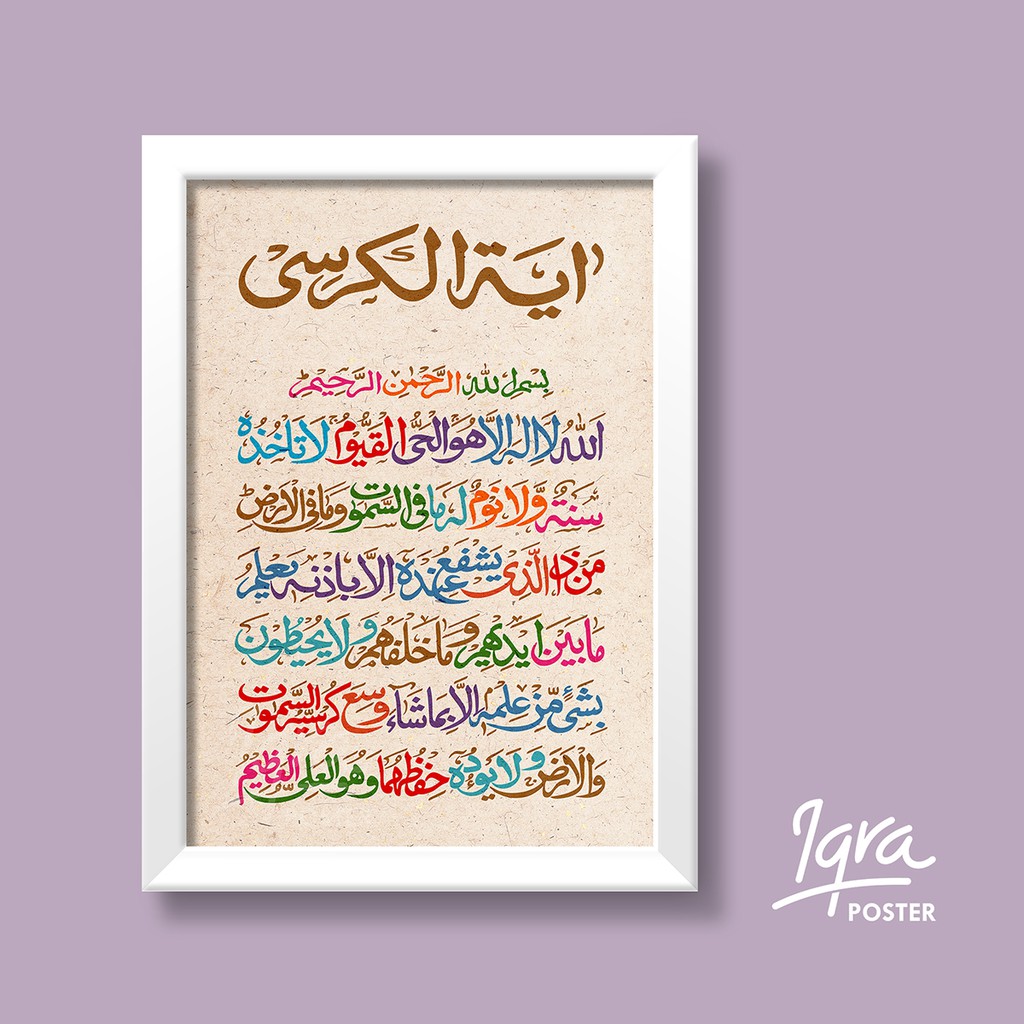 اية الكرسى
بسم الله الرحمن الرحيم
الله لا اله الا هو الحى القيوم لا تاخذه
سنة ولا نوم له ما فى السموت وما فى الارض
من ذا الذى يشفع عنده الا باذنه يعلم
ما بين ايديهم وما خلفهم ولا يحيطون
بشئ من علمه الا بما شاء وسع كرسيه السموت
والارض ولا يوده حفظهما وهو العلى العظيم
Iqra
POSTER